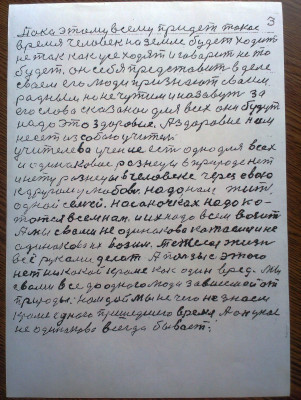 3
Пока этому всему придет такое
время человек на земле будет ходить
не так как уже ходят и говорит не то
будет, он себя представить в деле
своем его люди признают своим
родным и не чужим и назовут за
его слова сказаны для всех они будут
надо это здоровье, А здоровье нам
несет из собою учитель
учителева учение есть одно для всех
и одинаковое разнецы в природе нет
и нету разнецы в человеке через
к другому любовь надо нам жить
одной семьей. На саночках надо ко-
тотся всем нам, и их надо всем возит
А мы своим не одинаково катаемся не
одинаково не возим. Тяжелая жизн
всё руками делат А пользы с этого
нет никакой кроме как один вред. Мы
своим все до одного люди зависимо от
природы, мы не чего не знаем
кроме одного пришедшего время А оно у нас
не одинаково всегда бывает.